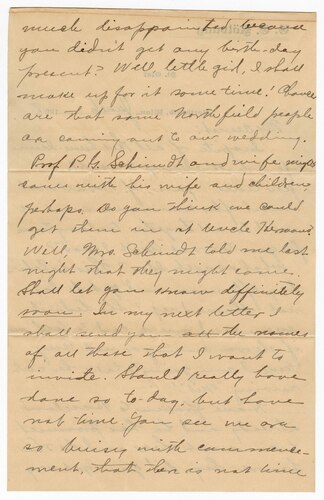 much disappointed because
you didn't get any birth-day
present? Well little girl, I shall
make up for it some time! Chances
are that some Northfield people
are coming out to our wedding.
Prof P. G. Schmidt and wife might
come with his wife and children
perhaps. Do you think we could
get them in at Uncle Hermans?
Well, Mrs. Schmidt told me last
night that they might come.
Shall let you know deffinitely
soon. In my next letter I
shall send you all the names
of all those that I want to
invite. Should really have
done so to day, but have
not time. You see we are
so buisy with commence-
ment, that there is not time